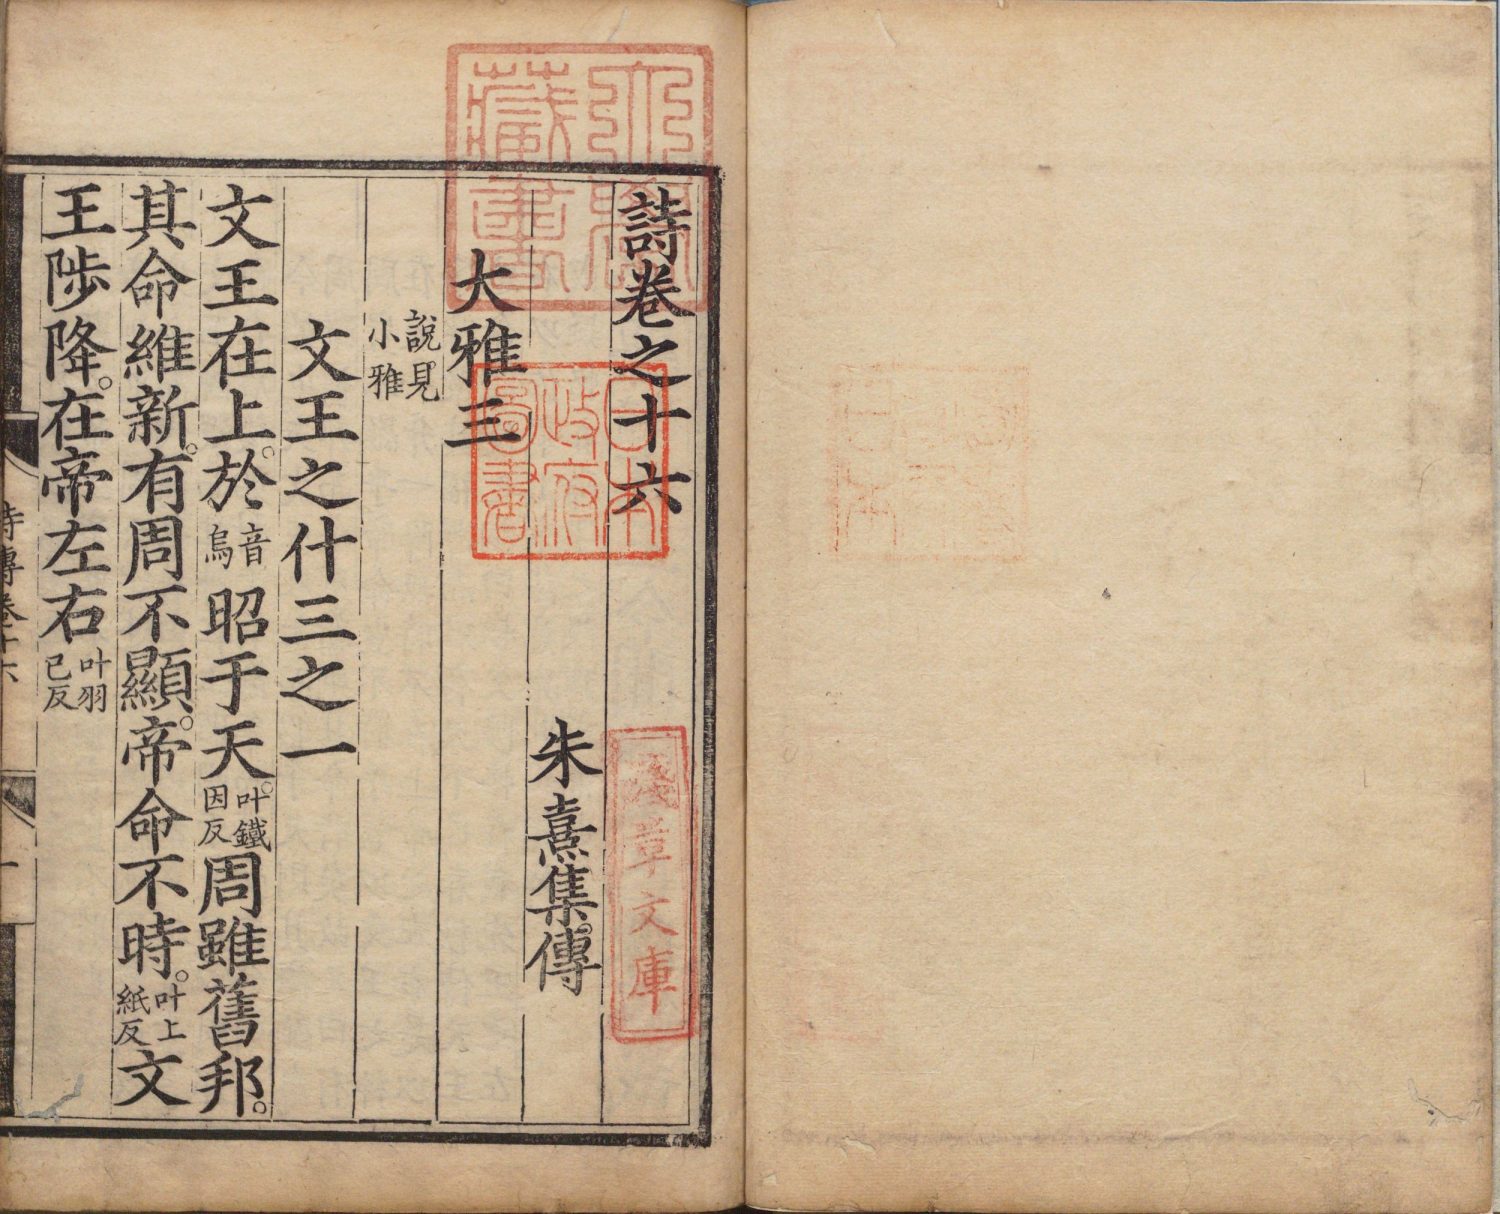 詩卷之十六
朱熹集傳
大雅三
說見
小雅
文王之什三之一
文王在上。於音烏昭于天。叶鐵因反周雖舊邦。
其命維新。有周不顯。帝命不時。叶上紙反文
王陟降。在帝左右叶羽已反
詩傳卷十六
一
藏書
日本政府圖書
淺草文庫